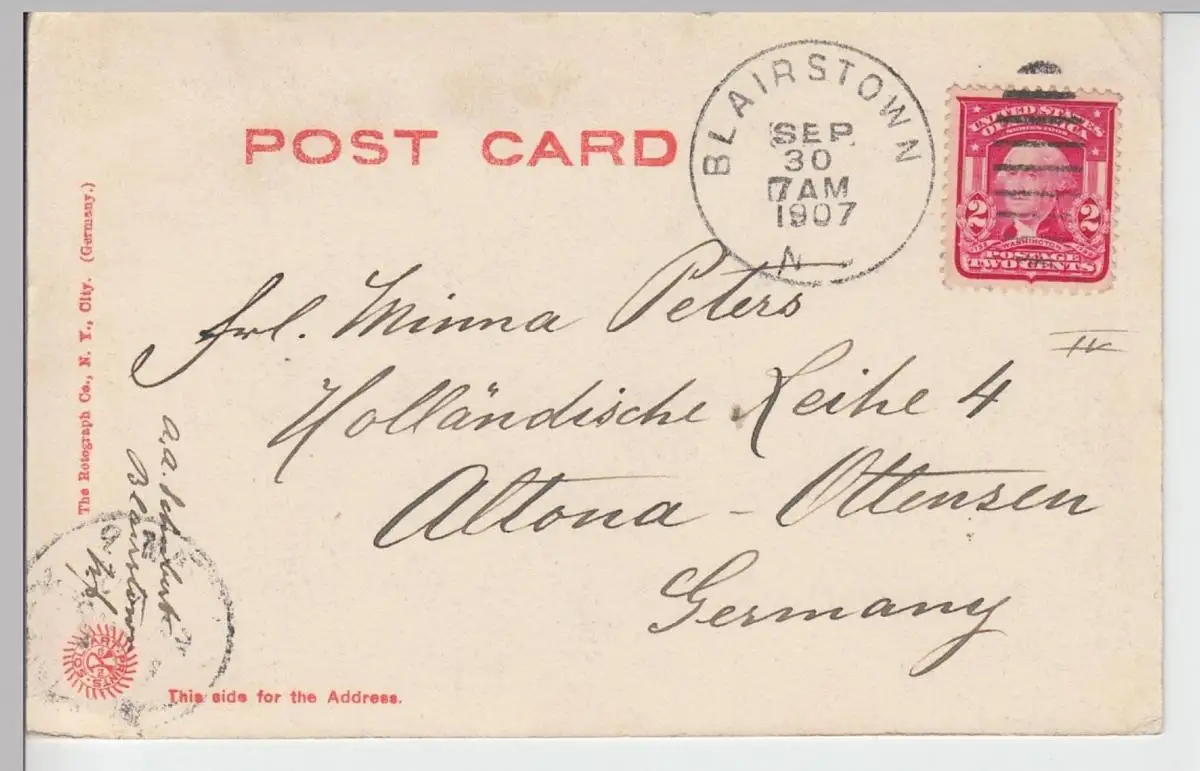 POST CARD
BLAIRSTOWN
SEP
30
7 AM
1907
N
UNITED STATES
OF AMERICA
SERIES 1902
2 2
WASHINGTON
POSTAGE
TWO CENTS
Frl. Minna Peters
IV
Holländische Reihe 4
Altona - Ottensen
Germany
The Rotograph Co., N. Y., City. (Germany.)
a.a.
Blairstown
N.J.
This side for the Address.